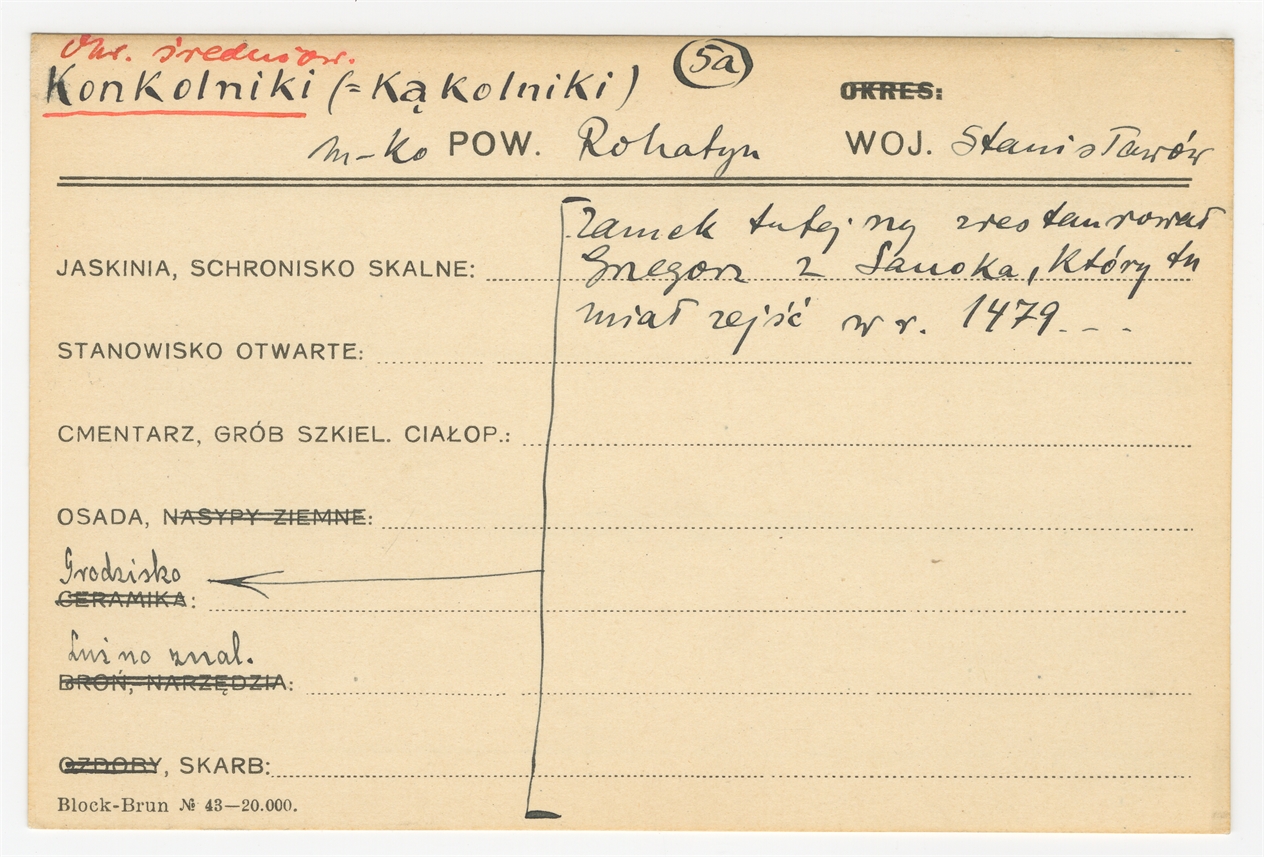 Okr. średniow.
Konkolniki (= Kąkolniki) 5a OKRES:
m-ko POW. Rohatyn WOJ. Stanisławów
Zamek tutejszy zrestaurował
JASKINIA, SCHRONISKO SKALNE: Grzegorz z Sanoka, który tu
miał zejść w r. 1479...
STANOWISKO OTWARTE:
CMENTARZ, GRÓB SZKIEL. CIAŁOP.:
OSADA, NASYPY ZIEMNE:
Grodzisko
CERAMIKA:
Luźno znal.
BROŃ, NARZĘDZIA:
OZDOBY, SKARB:
Block-Brun № 43—20.000.